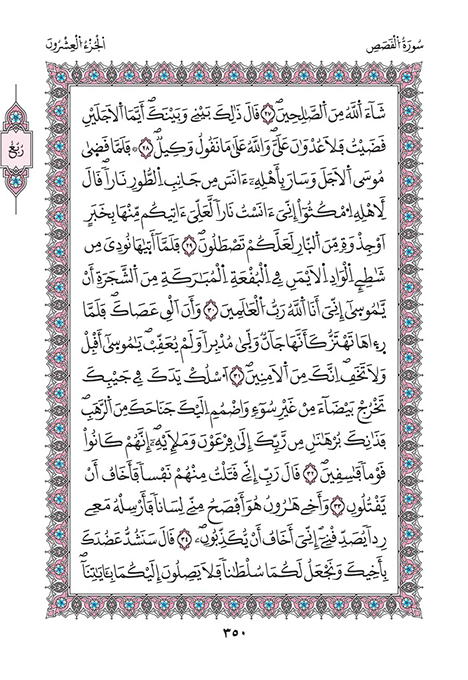 سُورَةُ الْقَصَصِ
الْجُزْءُ الْعِشْرُونَ
شَآءَ اَ۬للَّهُ مِنَ اَ۬لصَّٰلِحِينَۖ ٢٧ قَالَ ذَٰلِكَ بَيْنِے وَبَيْنَكَۖ أَيَّمَا اَ۬لَاجَلَيْنِ
قَضَيْتُ فَلَا عُدْوَٰنَ عَلَيَّۖ وَاللَّهُ عَلَىٰ مَا نَقُولُ وَكِيلٞۖ ٢٨ ۞ فَلَمَّا قَض۪ىٰ
مُوسَى اَ۬لَاجَلَ وَسَارَ بِأَهْلِهِۦٓ ءَانَسَ مِن جَانِبِ اِ۬لطُّورِ نَاراٗۖ قَالَ
لِأَهْلِهِ اِ۟مْكُثُوٓاْ إِنِّيَ ءَانَسْتُ نَاراٗ لَّعَلِّيَ ءَاتِيكُم مِّنْهَا بِخَبَرٍ
اَوْ جِذْوَةٖ مِّنَ اَ۬لنّ۪ارِ لَعَلَّكُمْ تَصْطَلُونَۖ ٢٩ فَلَمَّآ أَت۪ىٰهَا نُودِيَ مِن
شَٰطِےِٕ اِ۬لْوَادِ اِ۬لَايْمَنِ فِے اِ۬لْبُقْعَةِ اِ۬لْمُبَٰرَكَةِ مِنَ اَ۬لشَّجَرَةِ أَنْ
يَّٰمُوس۪ىٰٓ إِنِّيَ أَنَا اَ۬للَّهُ رَبُّ اُ۬لْعَٰلَمِينَۖ ٣٠ وَأَنَ اَلْقِ عَصَاكَۖ فَلَمَّا
ر۪ء۪اهَا تَهْتَزُّ كَأَنَّهَا جَآنّٞ وَلّ۪ىٰ مُدْبِراٗ وَلَمْ يُعَقِّبْۖ يَٰمُوس۪ىٰٓ أَقْبِلْ
وَلَا تَخَفِۖ اِنَّكَ مَِنَ اَ۬لَامِنِينَۖ ٣١ اَ۟سْلُكْ يَدَكَ فِے جَيْبِكَ
تَخْرُجْ بَيْضَآءَ مِنْ غَيْرِ سُوٓءٖۖ وَاضْمُمِ اِلَيْكَ جَنَاحَكَ مِنَ اَ۬لرَّهَبِۖ
فَذَٰنِكَ بُرْهَٰنَٰنِ مِن رَّبِّكَ إِلَىٰ فِرْعَوْنَ وَمَلَإِيْهِۦٓۖ إِنَّهُمْ كَانُواْ
قَوْماٗ فَٰسِقِينَۖ ٣٢ قَالَ رَبِّ إِنِّے قَتَلْتُ مِنْهُمْ نَفْساٗ فَأَخَافُ أَنْ
يَّقْتُلُونِۖ ٣٣ وَأَخِے هَٰرُونُ هُوَ أَفْصَحُ مِنِّے لِسَاناٗ فَأَرْسِلْهُ مَعِے
رِداٗ يُصَدِّقْنِےٓۖ إِنِّيَ أَخَافُ أَنْ يُّكَذِّبُونِۦۖ ٣٤ قَالَ سَنَشُدُّ عَضُدَكَ
بِأَخِيكَ وَنَجْعَلُ لَكُمَا سُلْطَٰناٗ فَلَا يَصِلُونَ إِلَيْكُمَا بِـَٔايَٰتِنَآۖ
رُبُعٌ
٣٥٠